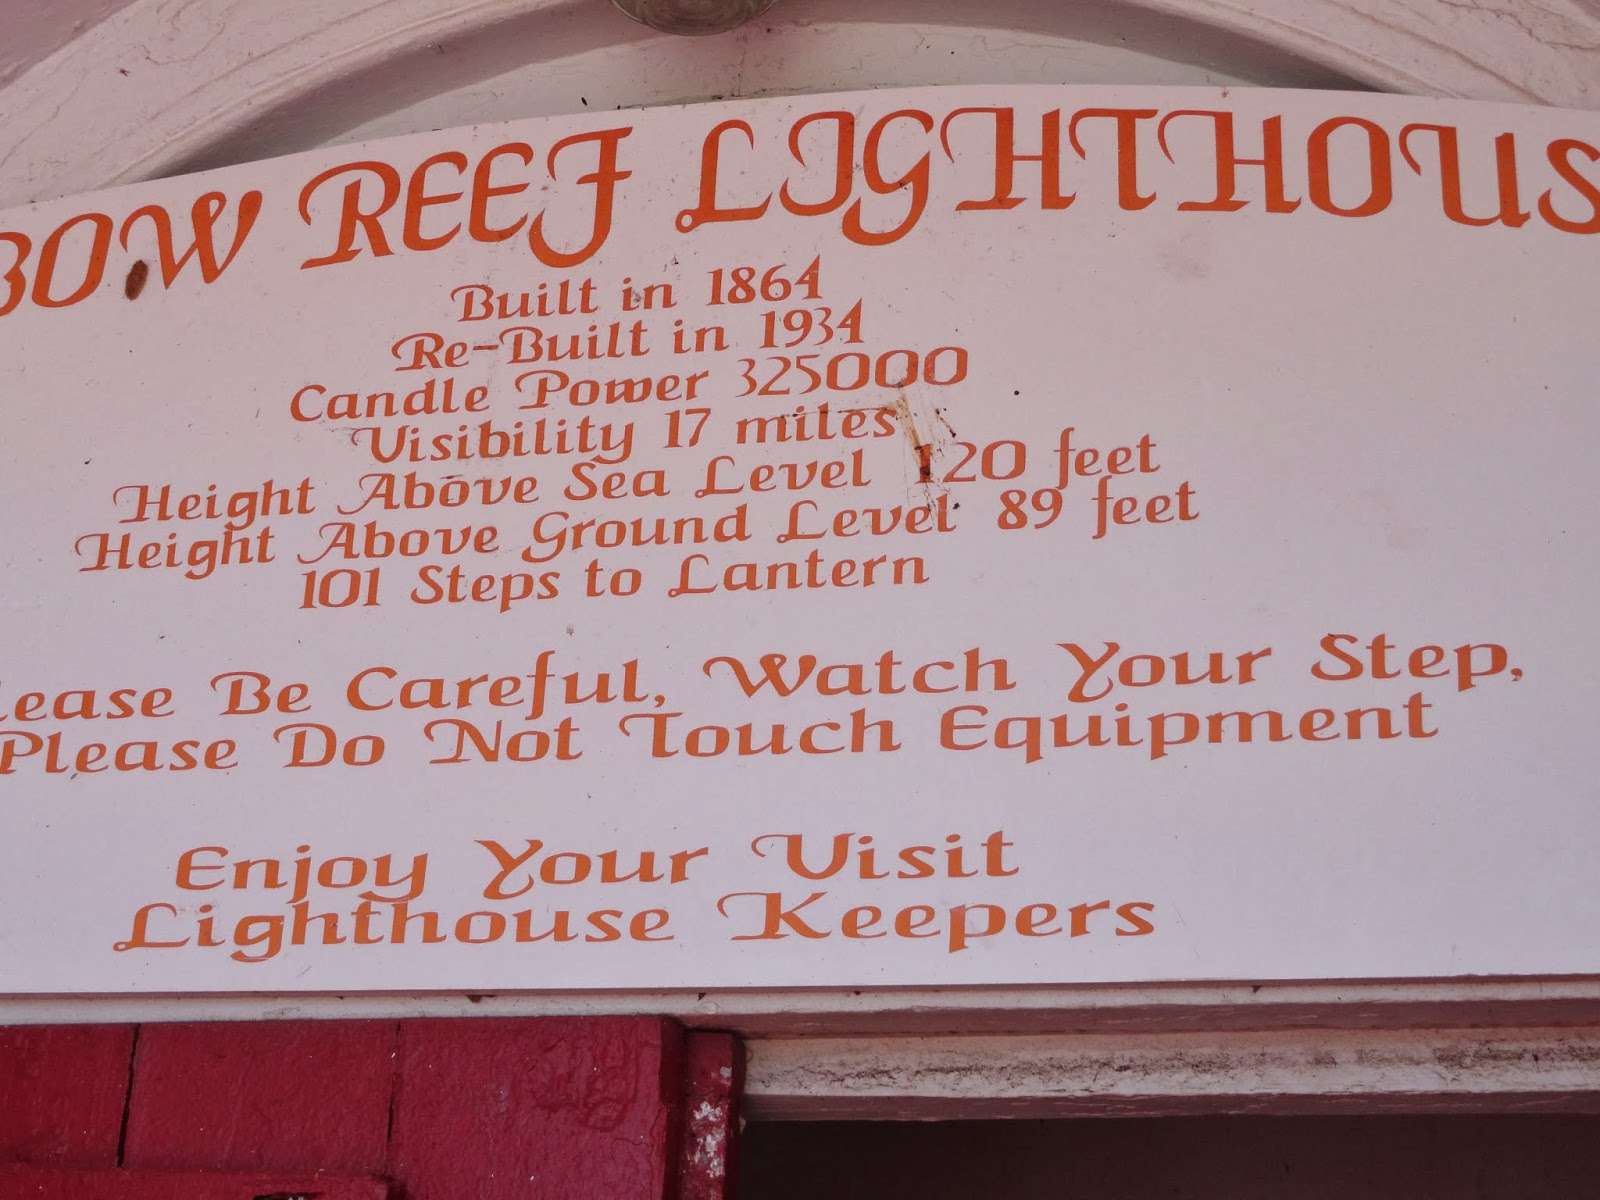 BOW REEF LIGHTHOUS
Built in 1864
Re-Built in 1934
Candle Power 325000
Visibility 17 miles
Height Above Sea Level 120 feet
Height Above Ground Level 89 feet
101 Steps to Lantern
lease Be Careful, Watch Your Step,
Please Do Not Touch Equipment
Enjoy Your Visit
Lighthouse Keepers